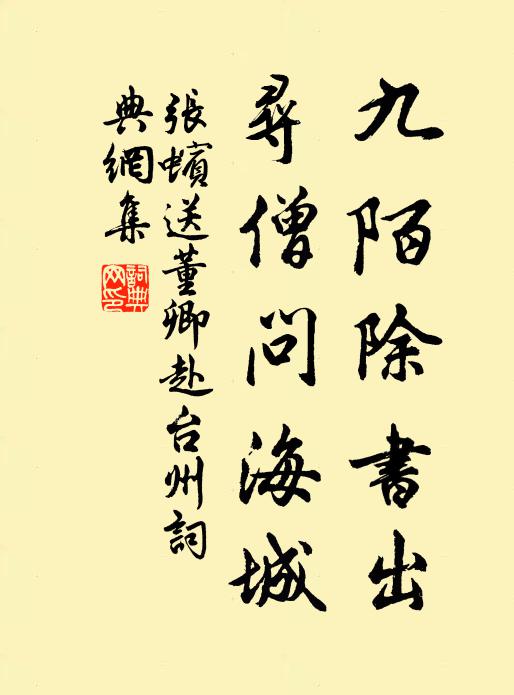 九陌除書出
尋僧問海城
張蠙送董卿赴台州詞
典網集
詞典
网印